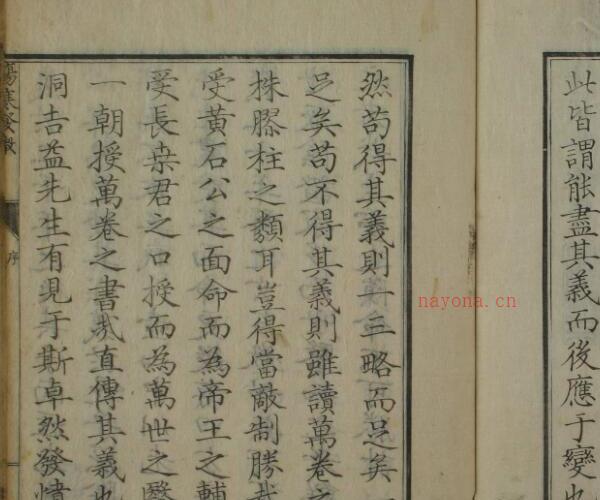 此皆謂能盡其義而後應于變也
然苟得其義則一三略而足矣
足矣苟不得其義則雖讀萬卷之
株膠柱之類耳豈得當敵制勝哉
受黃石公之面命而為帝王之輔
受長桑君之口授而為萬世之醫
一朝授萬卷之書哉直傳其義也
洞吉益先生有見于斯卓然發憤
傷寒發微
序
nayona.cn